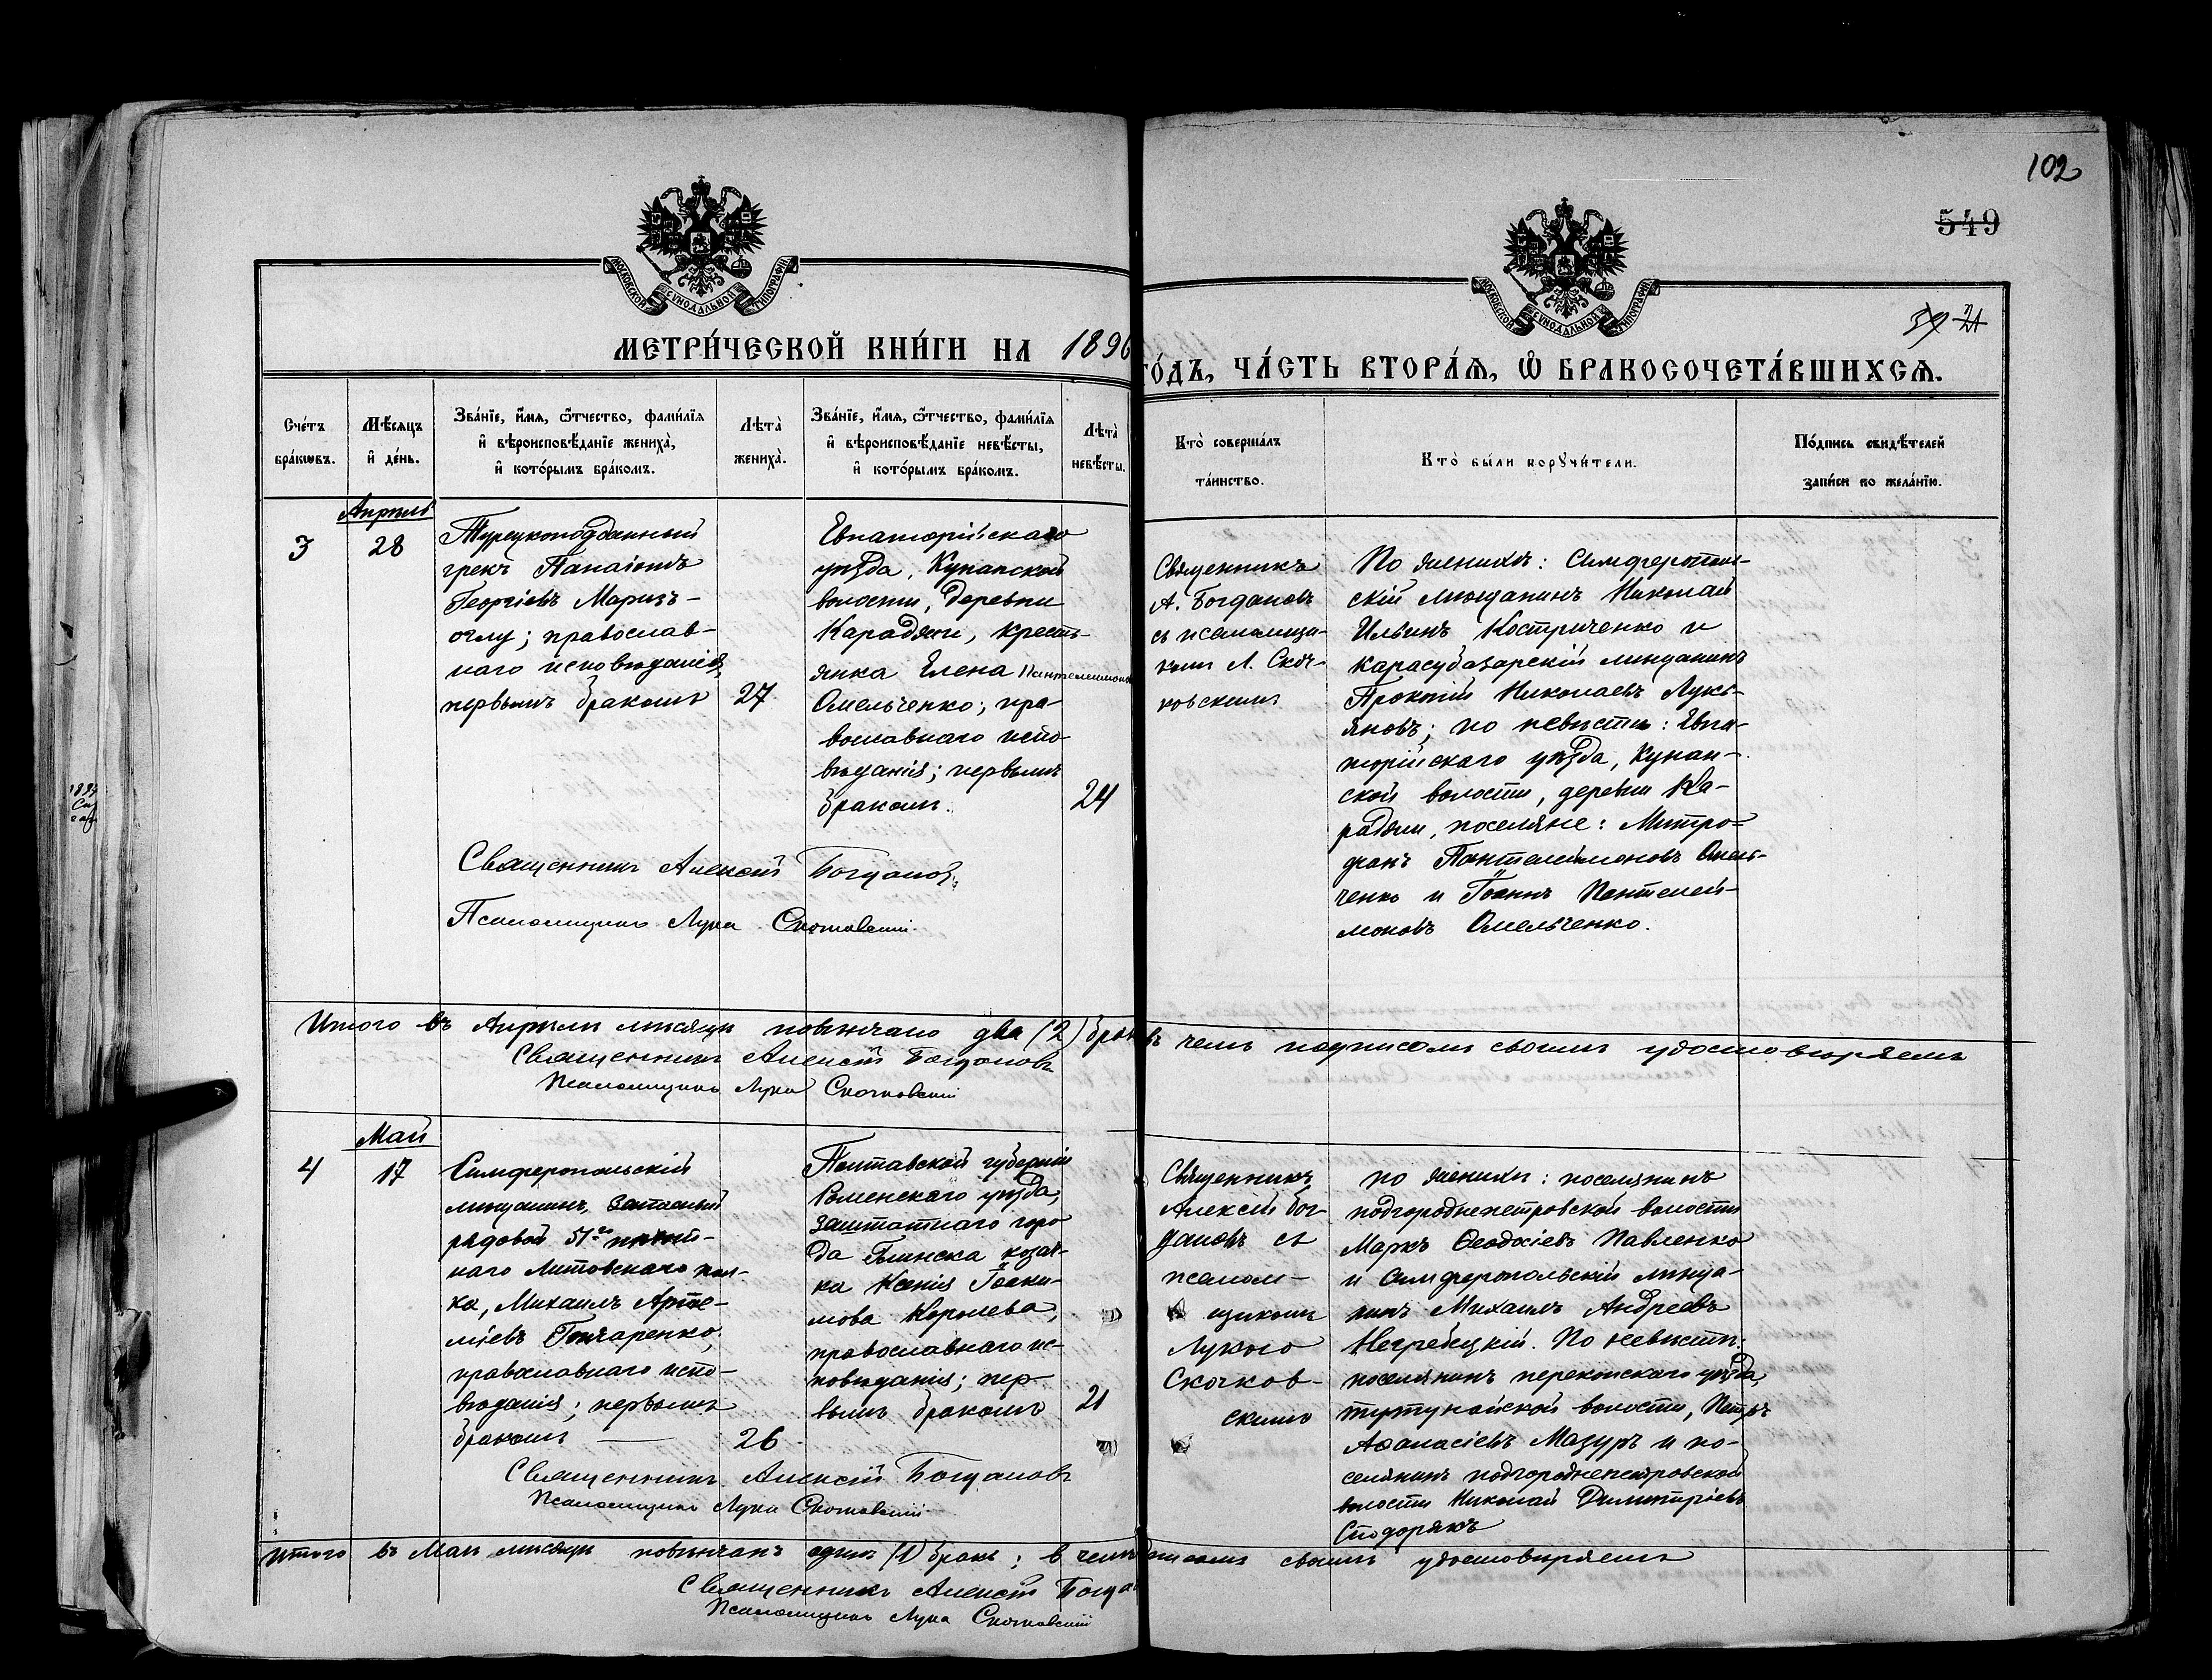 102
549
МОСКОВСКОЙ СѴНОДАЛЬНОЙ ТИПОГРАФІИ
МОСКОВСКОЙ СѴНОДАЛЬНОЙ ТИПОГРАФІИ
МЕТРИ́ЧЕСКОЙ КНИ́ГИ НА 1896
ГО́ДЪ, ЧА́СТЬ ВТОРА́Ѧ, Ѽ БРАКОСОЧЕТА́ВШИХСѦ.
Сче́тъ
бра́кѡвъ.
Мѣ́сѧцъ
и҆ де́нь.
Зва́нїе, и҆́мѧ, ѻ҆́тчество, фами́лїѧ
и҆ вѣроисповѣ́данїе жениха̀,
и҆ кото́рымъ бра́комъ.
Лѣта̀
жениха̀.
Зва́нїе, и҆́мѧ, ѻ҆́тчество, фами́лїѧ
и҆ вѣроисповѣ́данїе невѣ́сты,
и҆ кото́рымъ бра́комъ.
Лѣта̀
невѣ́сты.
Кто̀ соверша́лъ
та́инство.
Кто̀ бы́ли порꙋчи́тели.
По́дпись свидѣ́телей
за́писи по жела́нїю.
Апрѣль
3
28
Турецкоподданный
грекъ Панаіотъ
Георгіевъ Маризъ-
оглу; православ-
наго исповѣданія,
первымъ бракомъ
27
Евпаторійскаго
уѣзда, Кунанской
волости, деревни
Караджи, кресть-
янка Елена Пантелеимонова
Омельченко; пра-
вославнаго испо-
вѣданія; первымъ
бракомъ.
24
Священникъ
А. Богдановъ
съ псаломщи-
комъ Л. Скоч-
ковскимъ
По женихѣ: Симферополь-
скій мѣщанинъ Николай
Ильинъ Костриченко и
карасубазарскій мѣщанинъ
Прокопій Николаевъ Лукь-
яновъ; по невѣстѣ: Евпа-
торійскаго уѣзда, Кунан-
ской волости, деревни Ка-
раджи, поселяне: Митро-
фанъ Пантелеймоновъ Омель-
ченко и Іоаннъ Пантелей-
моновъ Омельченко.
Священникъ Алексій Богдановъ
Псаломщикъ Лука Скочковскій
Итого въ Апрѣлѣ мѣсяцѣ повѣнчано два (2) брака въ чемъ подписомъ своимъ удостовѣряемъ
Священникъ Алексій Богдановъ
Псаломщикъ Лука Скочковскій
Май
4
17
Симферопольскій
мѣщанинъ, запасный
рядовой 51го пѣхот-
наго Литовскаго пол-
ка, Михаилъ Арте-
міевъ Гончаренко,
православнаго испо-
вѣданія; первымъ
бракомъ
26
Полтавской губерніи
Роменскаго уѣзда,
заштатнаго горо
да Глинска козач-
ка Ксенія Іоаки-
мова Королева,
православнаго ис-
повѣданія; пер-
вымъ бракомъ
21
Священникъ
Алексій Бог-
дановъ съ
псалом-
щикомъ
Лукою
Скочков-
скимъ
по женихѣ: поселянинъ
подгороднепетровской волости
Маркъ Ѳеодосіевъ Павленко
и Симферопольскій мѣща-
нинъ Михаилъ Андреевъ
Негребецкій. По невѣстѣ:
поселянинъ перекопскаго уѣзда,
волости, Петръ
Аѳанасіевъ Мазуръ и по-
селянинъ подгороднепетровской
волости Николай Димитріевъ
Священникъ Алексій Богдановъ
Псаломщикъ Лука Скочковскій
Итого въ Маѣ мѣсяцѣ повѣнчанъ одинъ (1) бракъ; в чемъ подписомъ своимъ удостовѣряемъ
Священникъ Алексій Богда
Псаломщикъ Лука Скочковскій